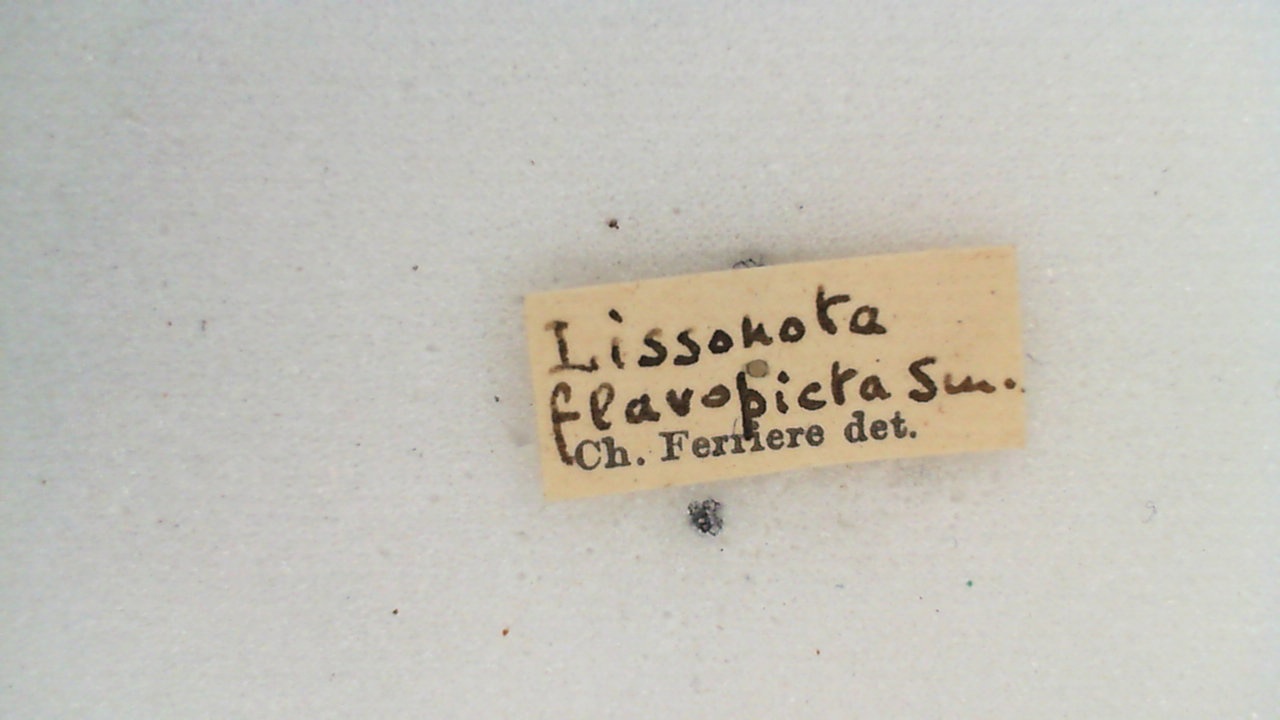 Lissonota
flavopicta Sm.
Ch. Ferriere det.